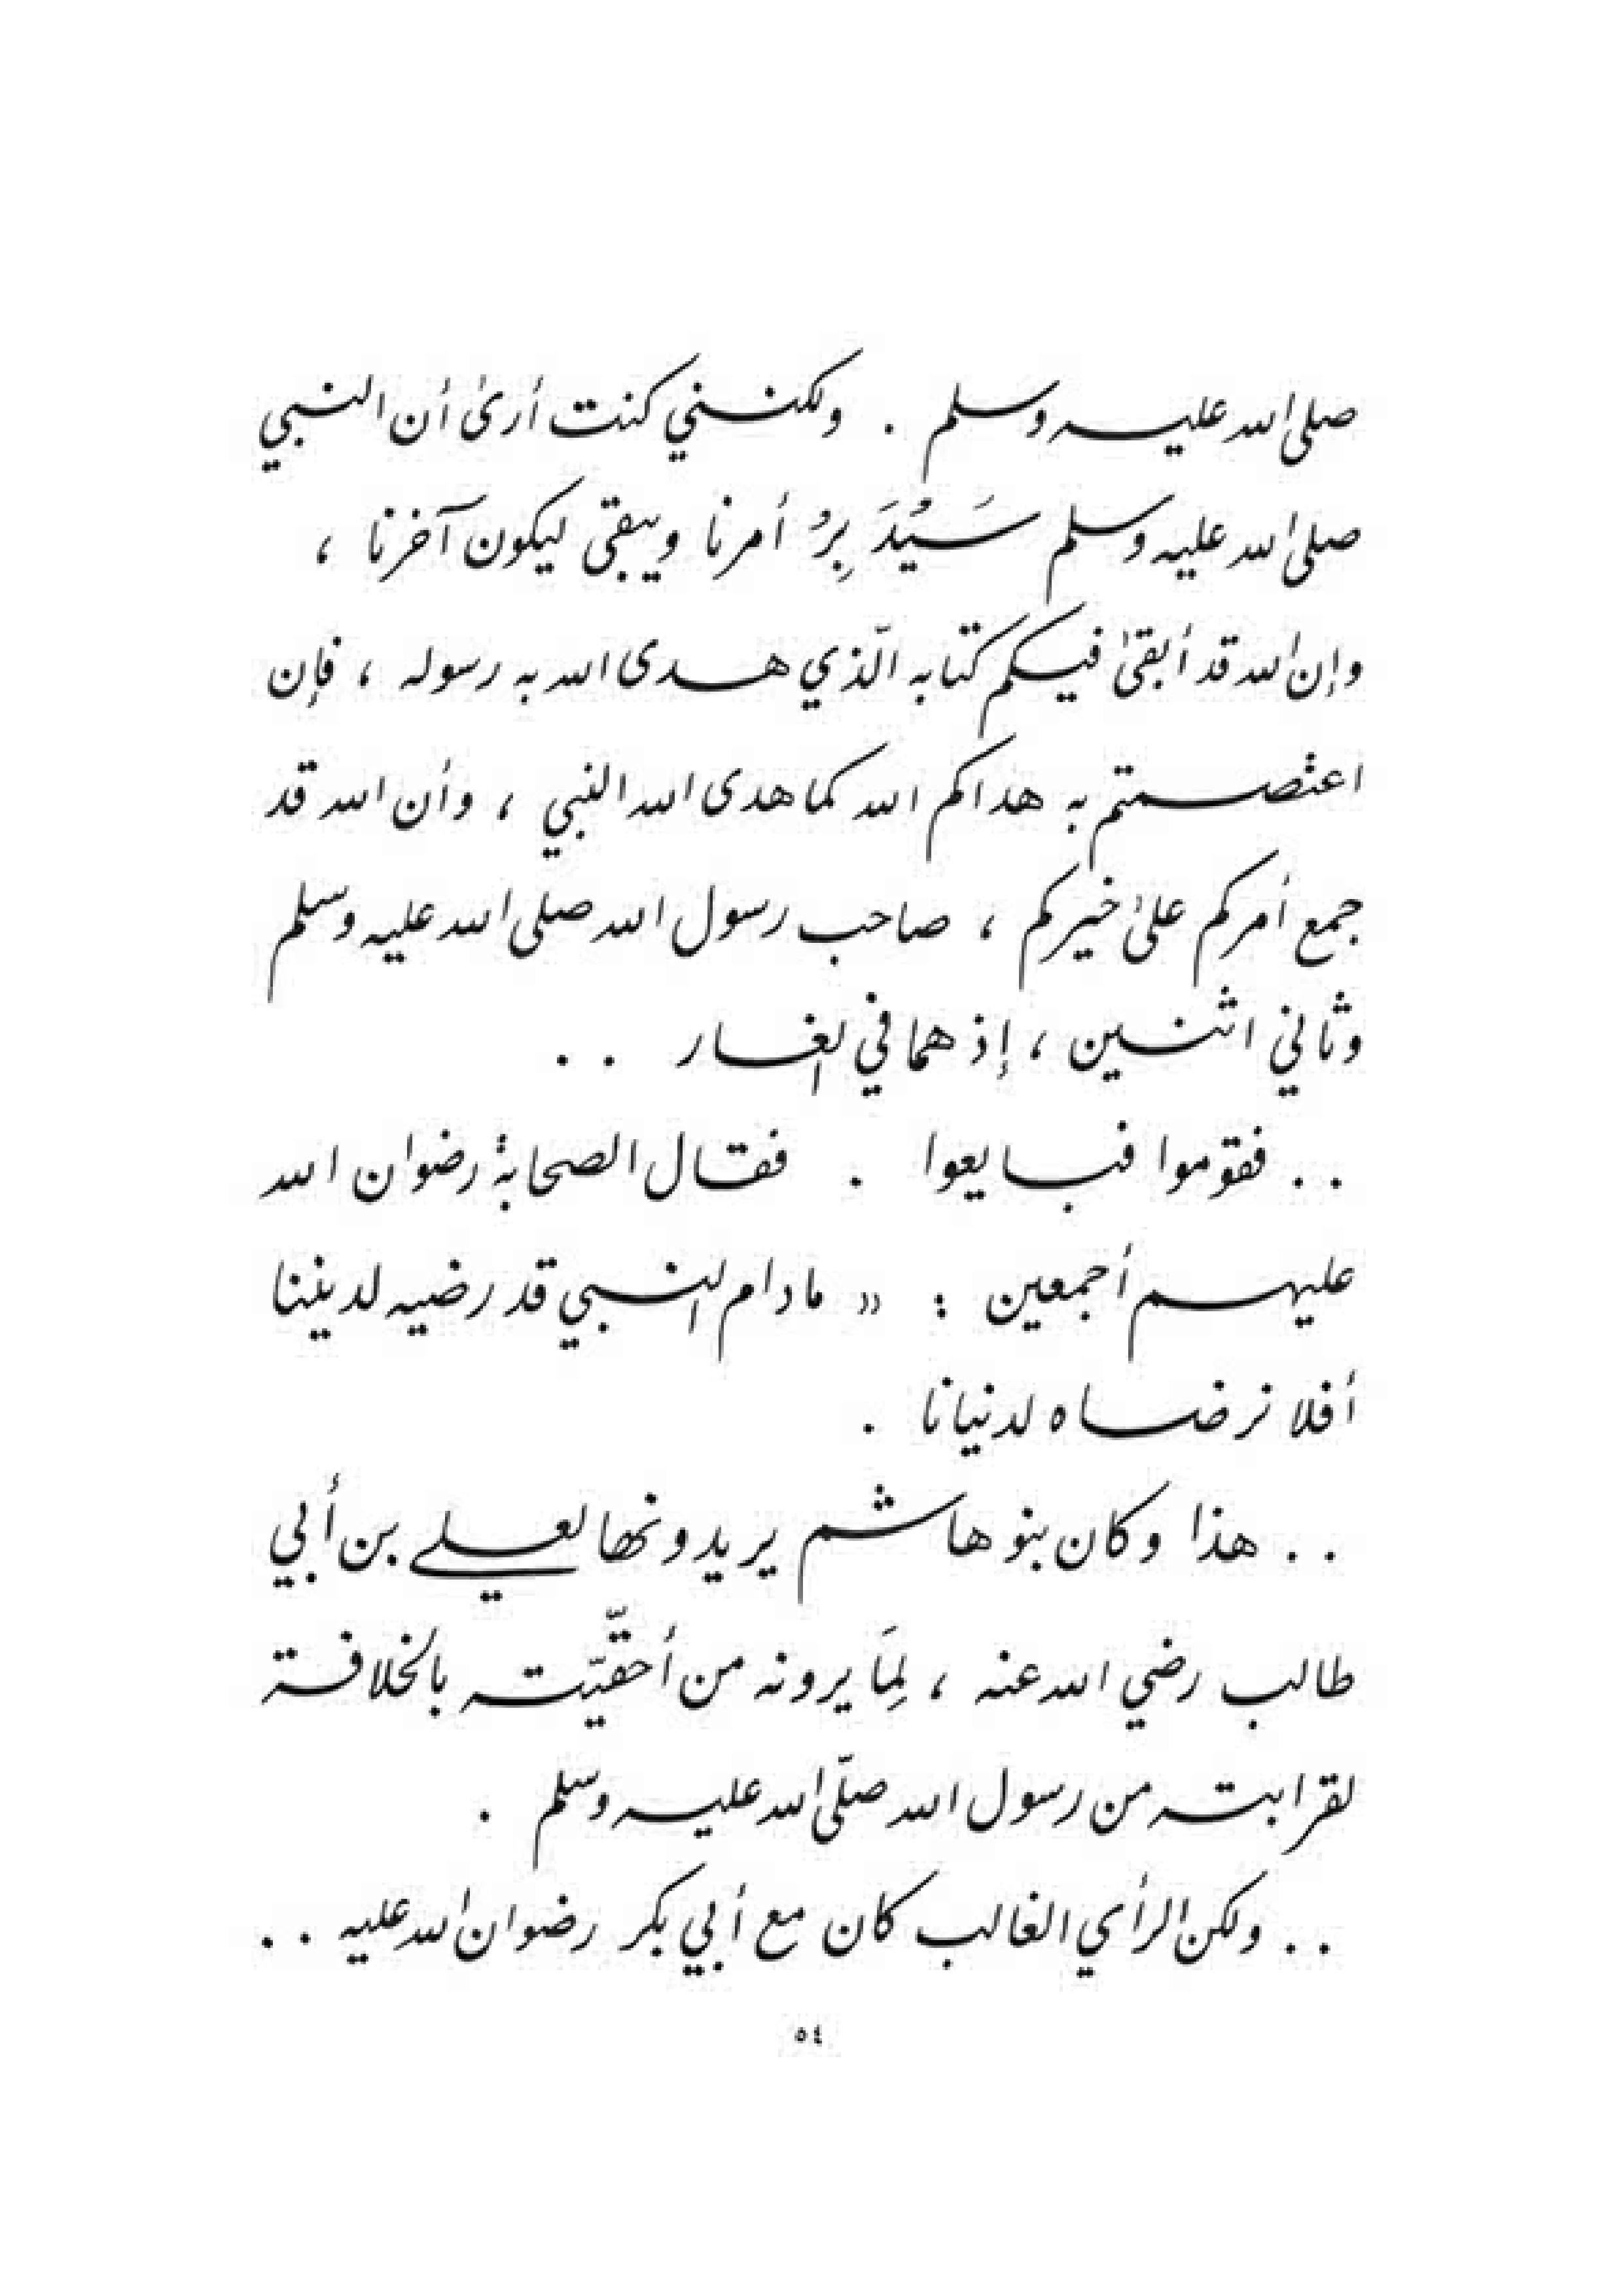 صلى الله عليه وسلم . ولكنني كنت أرىٰ أن النبي
صلى الله عليه وسلم سَيُدَبِرُ أمرنا ويبقى ليكون آخرنا ،
وإن الله قد أبقىٰ فيكم كتابه الّذي هدى الله به رسوله ، فإن
اعتصمتم به هداكم الله كما هدى الله النبي ، وأن الله قد
جمع أمركم علىٰ خيركم ، صاحب رسول الله صلى الله عليه وسلم
وثاني اثنين ، إذ هما في الغار . .
. . فقوموا فبايعوا . فقال الصحابة رضوان الله
عليهم أجمعين : « مادام النبي قد رضيه لديننا
أفلا نرضاه لدنيانا .
. . هذا وكان بنو هاشم يريدونها لعلي بن أبي
طالب رضي الله عنه ، لِمَا يرونه من أحقّيّته بالخلافة
لقرابته من رسول الله صلّى الله عليه وسلم .
. . ولكن الرأي الغالب كان مع أبي بكر رضوان الله عليه . .
٥٤